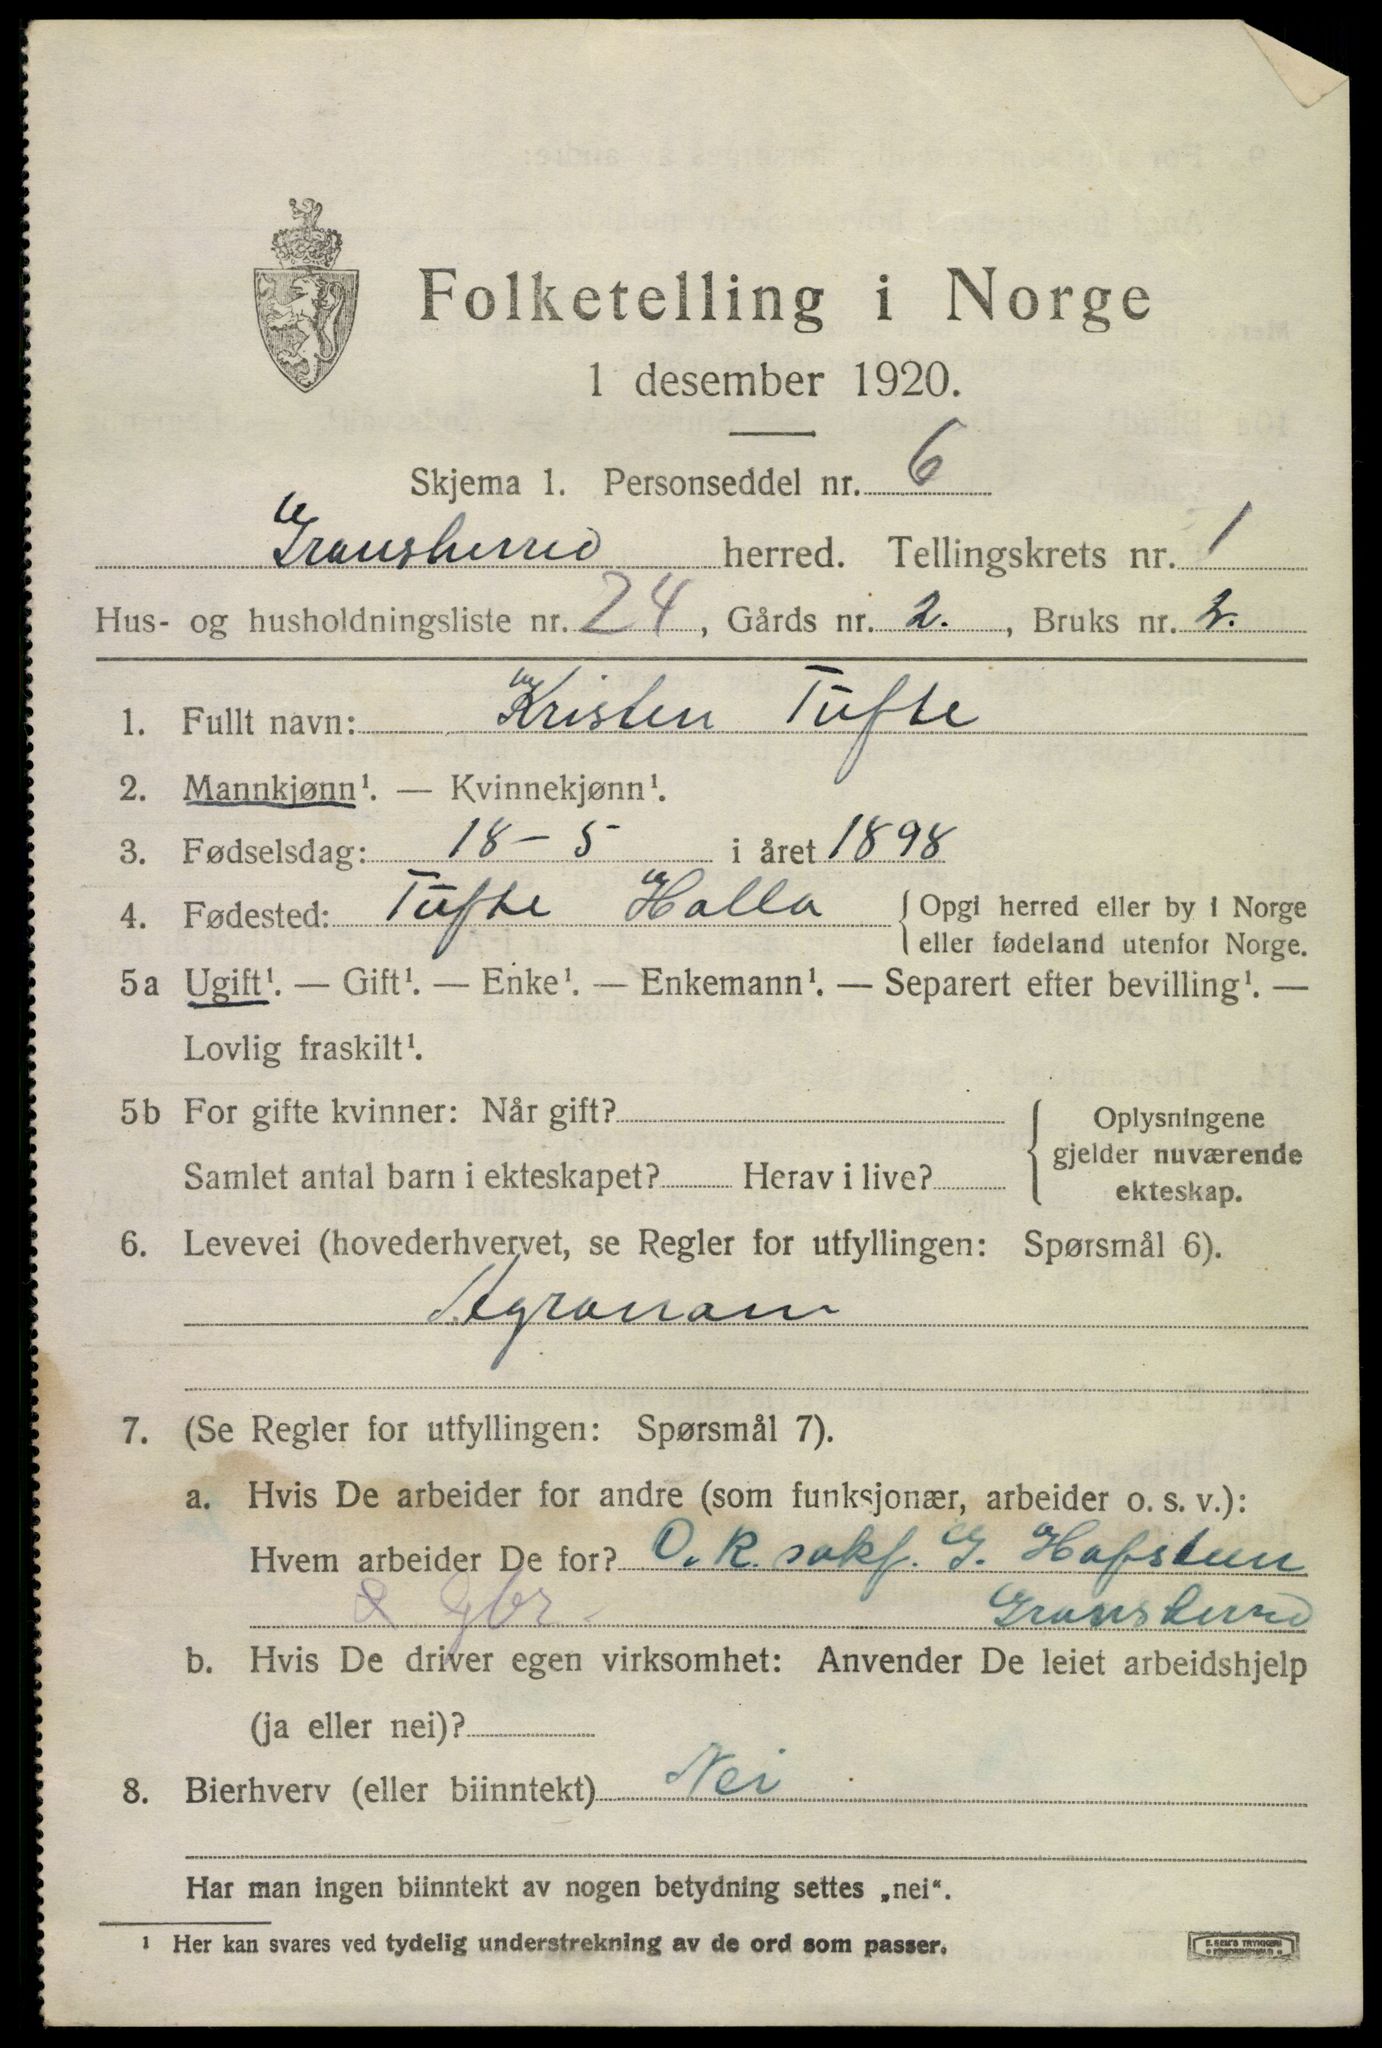 Folketelling i Norge
1 desember 1920.
Skjema 1. Personseddel nr. 6
Gransherred herred. Tellingskrets nr. 1
Hus- og husholdningsliste nr. 24, Gårds nr. 2., Bruks nr. 2.
1. Fullt navn: Kristen Tufte
2. Mannkjønn¹. — Kvinnekjønn¹.
3. Fødselsdag: 18 - 5 i året 1898
4. Fødested: Tufte Holla { Opgi herred eller by i Norge
eller fødeland utenfor Norge.
5a Ugift¹. — Gift¹. — Enke¹. — Enkemann¹. — Separert efter bevilling¹. —
Lovlig fraskilt¹.
5b For gifte kvinner: Når gift? { Oplysningene
gjelder nuværende
Samlet antal barn i ekteskapet? Herav i live? ekteskap.
6. Levevei (hovederhvervet, se Regler for utfyllingen: Spørsmål 6).
Agronom
7. (Se Regler for utfyllingen: Spørsmål 7).
a. Hvis De arbeider for andre (som funksjonær, arbeider o. s. v.):
Hvem arbeider De for? O. R. sakf. G. Hofsteen
gbr. Gransherred
b. Hvis De driver egen virksomhet: Anvender De leiet arbeidshjelp
(ja eller nei)?
8. Bierhverv (eller biinntekt) Nei
Har man ingen biinntekt av nogen betydning settes „nei".
¹ Her kan svares ved tydelig understrekning av de ord som passer.